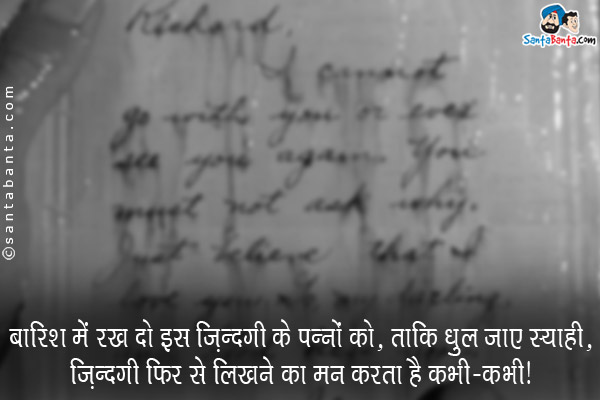 SantaBanta.com
Richard,
I cannot
go with you or ever
see you again. You
must not ask why.
Just believe that I
love you
©santabanta.com
बारिश में रख दो इस ज़िन्दगी के पन्नों को, ताकि धुल जाए स्याही,
ज़िन्दगी फिर से लिखने का मन करता है कभी-कभी!